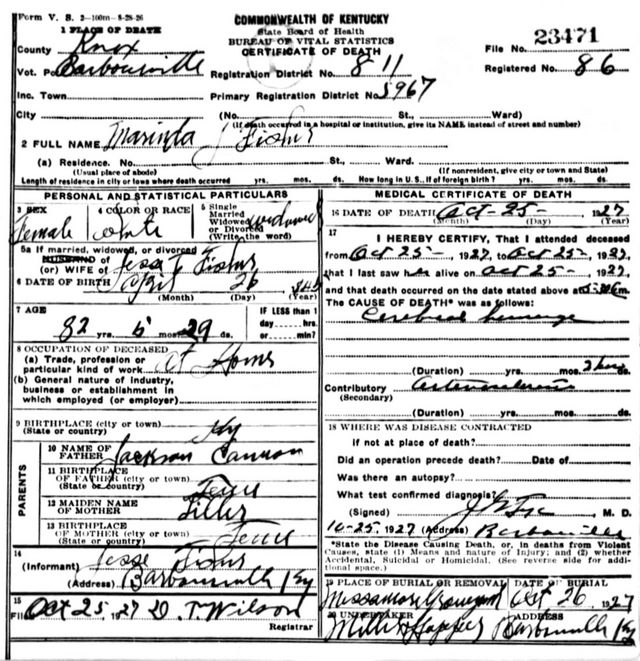 Form V. S. 2—100m—8-28-26
COMMONWEALTH OF KENTUCKY
State Board of Health
BUREAU OF VITAL STATISTICS
CERTIFICATE OF DEATH
File No. 23471
Registered No. 86
1 PLACE OF DEATH
County Knox
Vot. P Barbourville
Registration District No. 811
Inc. Town
Primary Registration District No. 5967
City (No. St., Ward)
(If death occurred in a hospital or institution, give its NAME instead of street and number)
2 FULL NAME Marinda J Fisher
(a) Residence. No. St., Ward.
(Usual place of abode) (If nonresident, give city or town and State)
Length of residence in city or town where death occurred yrs. mos. ds. How long in U. S., If of foreign birth? yrs. mos. ds.
PERSONAL AND STATISTICAL PARTICULARS
3 SEX 4 COLOR OR RACE 5 Single Married Widowed or Divorced (Write the word)
Female white widowed
5a If married, widowed, or divorced
HUSBAND of
(or) WIFE of Jesse T Fisher
6 DATE OF BIRTH April 26
(Month) (Day) (Year)
7 AGE IF LESS than 1
82 yrs. 5 mos. 29 ds. day,....hrs. or....min?
8 OCCUPATION OF DECEASED
(a) Trade, profession or particular kind of work at Home
(b) General nature of Industry,
business or establishment in
which employed (or employer)
9 BIRTHPLACE (city or town) Ky
(State or country)
PARENTS
10 NAME OF FATHER Jackson Cannon
11 BIRTHPLACE OF FATHER (city or town) Tenn
(State or country)
12 MAIDEN NAME OF MOTHER
13 BIRTHPLACE OF MOTHER (city or town) Tenn
(State or country)
14
(Informant) Jesse Fisher
(Address) Barbourville Ky
15
Filed Oct 25, 1927 D. T. Wilson
Registrar
MEDICAL CERTIFICATE OF DEATH
16 DATE OF DEATH Oct-25- 1927
(Month) (Day) (Year)
17
I HEREBY CERTIFY, That I attended deceased
from Oct 25-, 1927, to Oct 25-, 1927,
that I last saw h alive on Oct 25-, 1927,
and that death occurred on the date stated above at
The CAUSE OF DEATH* was as follows:
Cerebral
(Duration) yrs. mos. ds.
Contributory
(Secondary)
(Duration) yrs. mos. ds.
18 WHERE WAS DISEASE CONTRACTED
If not at place of death?
Did an operation precede death? Date of
Was there an autopsy?
What test confirmed diagnosis?
(Signed) , M. D.
10-25, 1927 (Address) Barbourville
*State the Disease Causing Death, or, in deaths from Violent
Causes, state (1) Means and nature of Injury; and (2) whether
Accidental, Suicidal or Homicidal. (See reverse side for addi-
tional space.)
19 PLACE OF BURIAL OR REMOVAL DATE OF BURIAL
Oct 26 1927
20 UNDERTAKER ADDRESS
Barbourville Ky